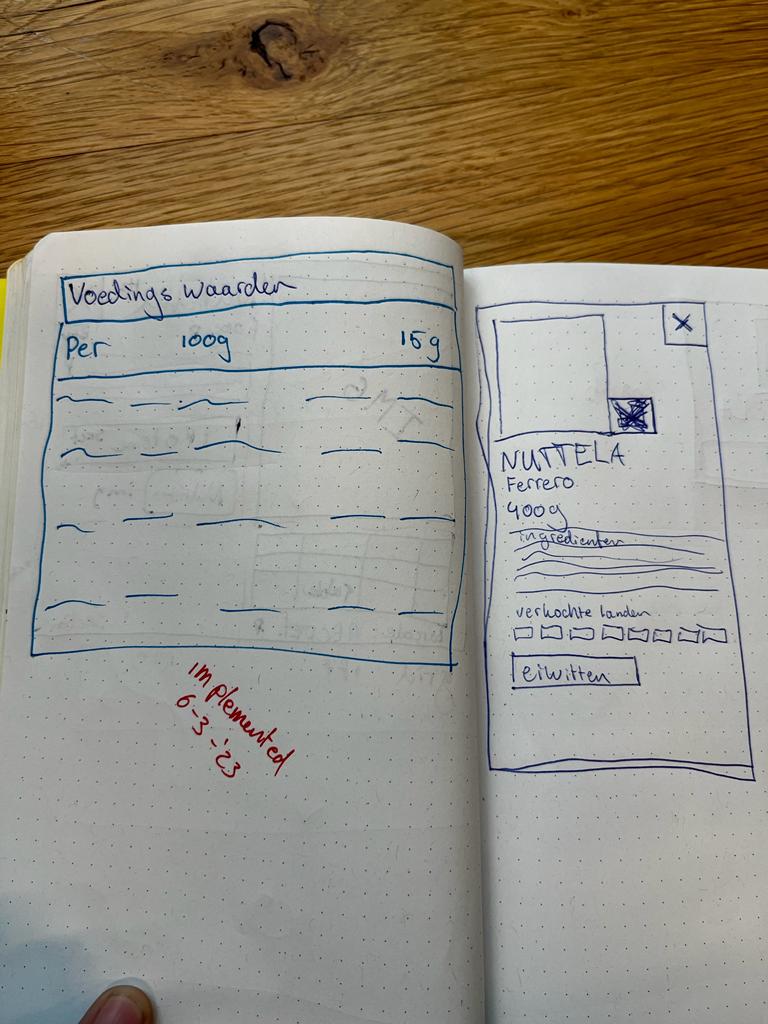 Voedings waarden
Per 100g 15g
implemented
6-3-'23
X
NUTTELA
Ferrero
400g
ingredienten
verkochte landen
eiwitten